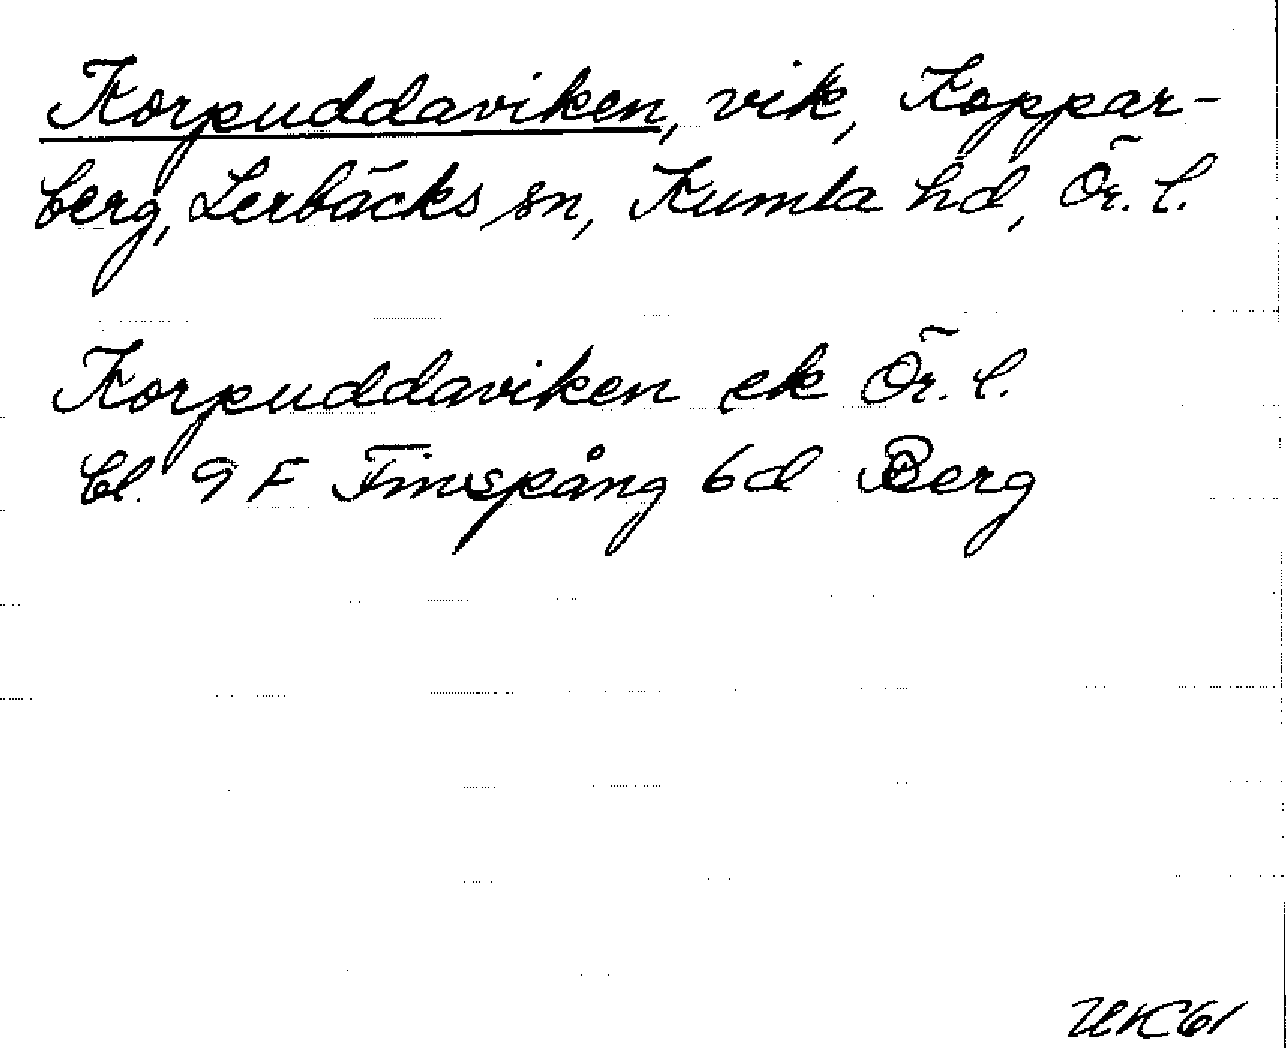 Korpuddaviken, vik, Koppar-
berg, Lerbäcks sn, Kumla hd, Ör. l.
Korpuddaviken ek Ör. l.
bl. 9 F Finspång 6d Berg
UK61